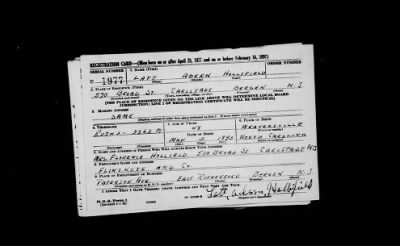 REGISTRATION CARD—(Men born on or after April 28, 1877 and on or before February 16, 1897)
SERIAL NUMBER 1. NAME (Print)
U 1977 LATT HOLLIFIELD
2. PLACE OF RESIDENCE (Print)
570 BROAD ST. CARLSTADT BERGEN N.J.
[THE PLACE OF RESIDENCE GIVEN ON THE LINE ABOVE WILL DETERMINE LOCAL BOARD
JURISDICTION; LINE 2 OF REGISTRATION CERTIFICATE WILL BE IDENTICAL]
3. MAILING ADDRESS
SAME
4. TELEPHONE 5. AGE IN YEARS 6. PLACE OF BIRTH
48
DATE OF BIRTH
MAR 1893 NORTH CAROLINA
7. NAME AND ADDRESS OF PERSON WHO WILL ALWAYS KNOW YOUR ADDRESS
MRS. FLORENCE HOLLIFIELD 570 BROAD ST. CARLSTADT NJ
8. EMPLOYER'S NAME AND ADDRESS
FLINTKOTE AND CO.
9. PLACE OF EMPLOYMENT OR BUSINESS
PATERSON AVE. EAST RUTHERFORD BERGEN N.J.
I AFFIRM THAT I HAVE VERIFIED ABOVE ANSWERS AND THAT THEY ARE TRUE.
D. S. S. Form 1
Hollifield